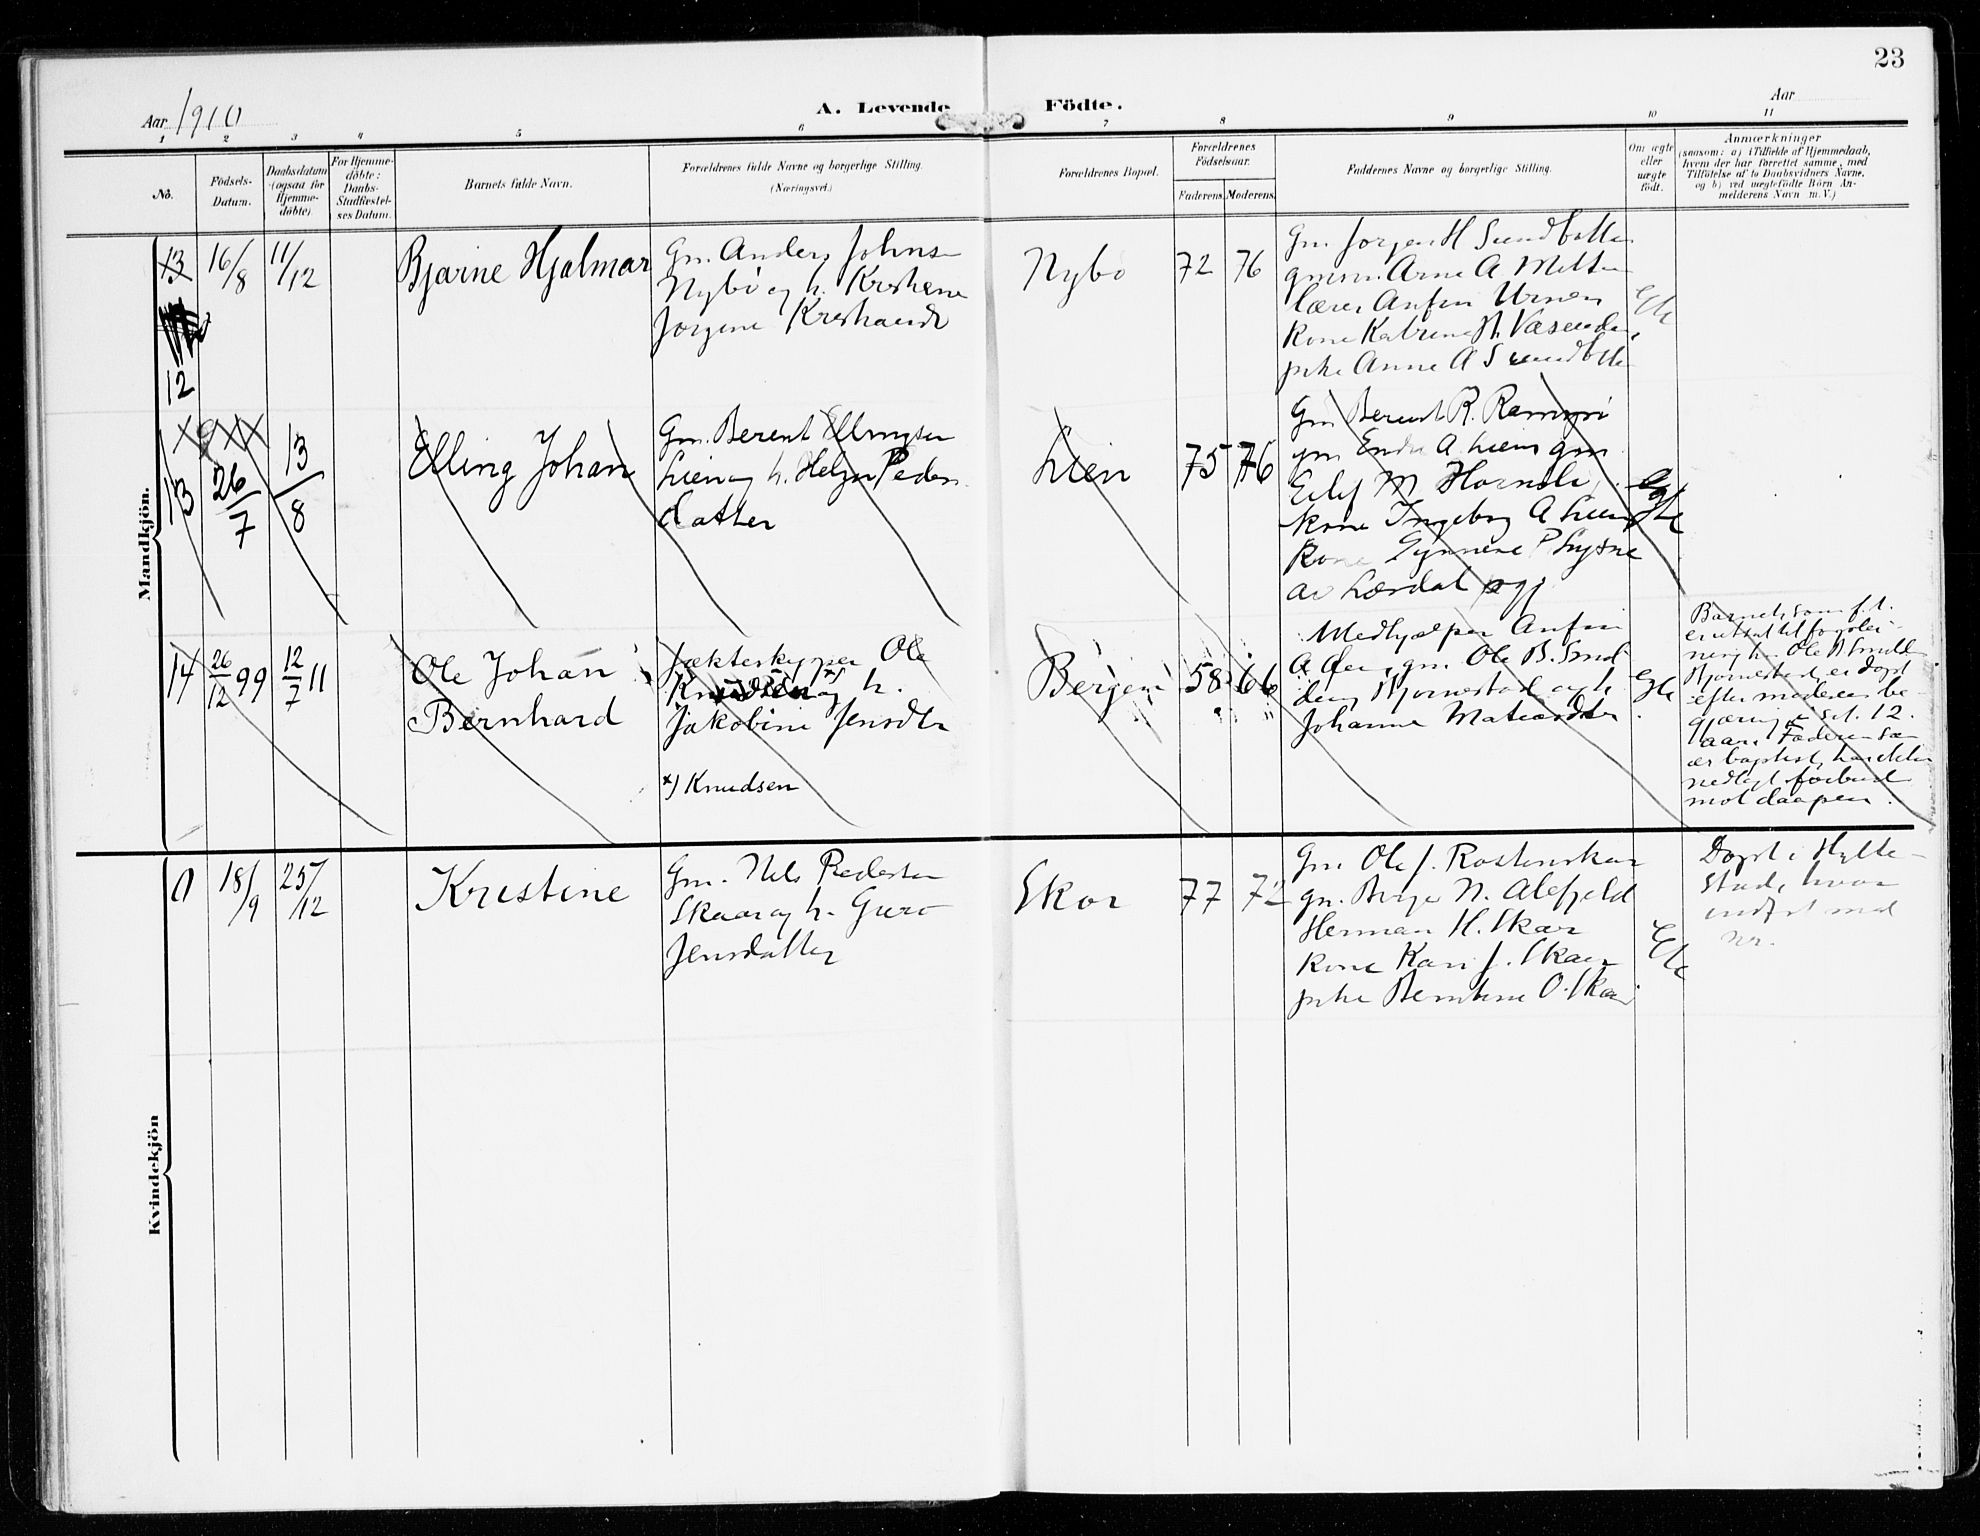 23
Aar 1910
A. Levende Födte.
Aar
1 2 3 4 5 6 7 8 9 10 11
No.
Födsels-
Datum.
Daabsdatum
(ogsaa for
Hjemme-
döbte)
For Hjemme-
döbte:
Daabs-
Stadfæstel-
ses Datum.
Barnets fulde Navn.
Forældrenes fulde Navne og borgerlige Stilling.
(Næringsvei.)
Forældrenes Bopæl.
Forældrenes
Födselsaar.
Faderens. Moderens.
Faddernes Navne og borgerlige Stilling.
Om ægte
eller
uægte
födt.
Anmærkninger
(saasom: a) i Tilfælde af Hjemmedaab,
hvem der har forrettet samme, med
Tilföielse af to Daabsvidners Navne,
og b) ved uægtefödte Börn An-
melderens Navn m. V.)
Mandkjön.
13
12
16/8
11/12
Bjarne Hjalmar
Gm. Anders Johns
Nybö og h. Kristiane
Jorgine
Nybo
72 76
Gm Jorgen H Sundbotten
Arne A Melten
lærer Anfin Urnes
Kone Katrine H. Væsenden
pike Anne A Sundbotten
Egte
13
26/7
13/8
Elling Johan
Gm. Berent Ellingsen
Lien og h. Helga Peders
datter
Lien
75 76
Gm Berent R.
gm Endre A Lien gm
M
Kone Ingeborg A Lien
Kone P Lysne
av Lærdal
Egte
14
26/12 99
12/7 11
Ole Johan
Bernhard
Jækteskipper Ole
Knudsen x) og h.
Jakobine Jensdtr
x) Knudsen
Bergen
58 66
Medhjælper Anfin
A gm. Ole B. Smel
Bjørnestad og h
Johanne
Egte
Barnet, som f. t.
er utsat til forplei-
ning h. Ole B Smell
Bjørnestad, er døpt
efter moderens be-
gjæring i sit 12.
aar. Faderen som
er baptist, har ikke
nedlagt forbud
mot daapen.
Kvindekjön
0
18/9
25/12
Kristine
Gm. Nils Pedersen
Skaar og h. Guro
Jensdatter
Skor
77 72
Gm Ole J.
gm. N. Alefjeld
Herman H. Skar
Kone Kari J. Skaar
pike Berntine O. Skar
Egte
Døpt i Hylle-
stad, hvor
indført med
nr.